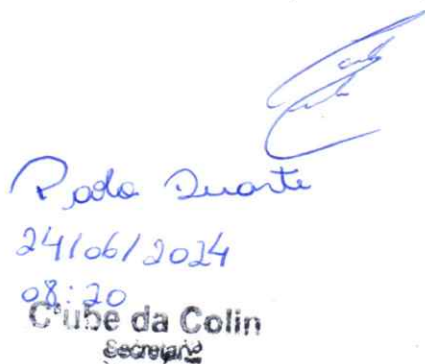 Paola Duarte
24/06/2024
08:20
Clube da Colin
Secretaria